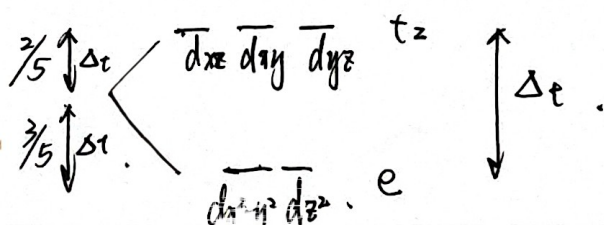 2/5 Δt dxz dxy dyz t2
Δt
3/5 Δt
dx²-y² dz² e